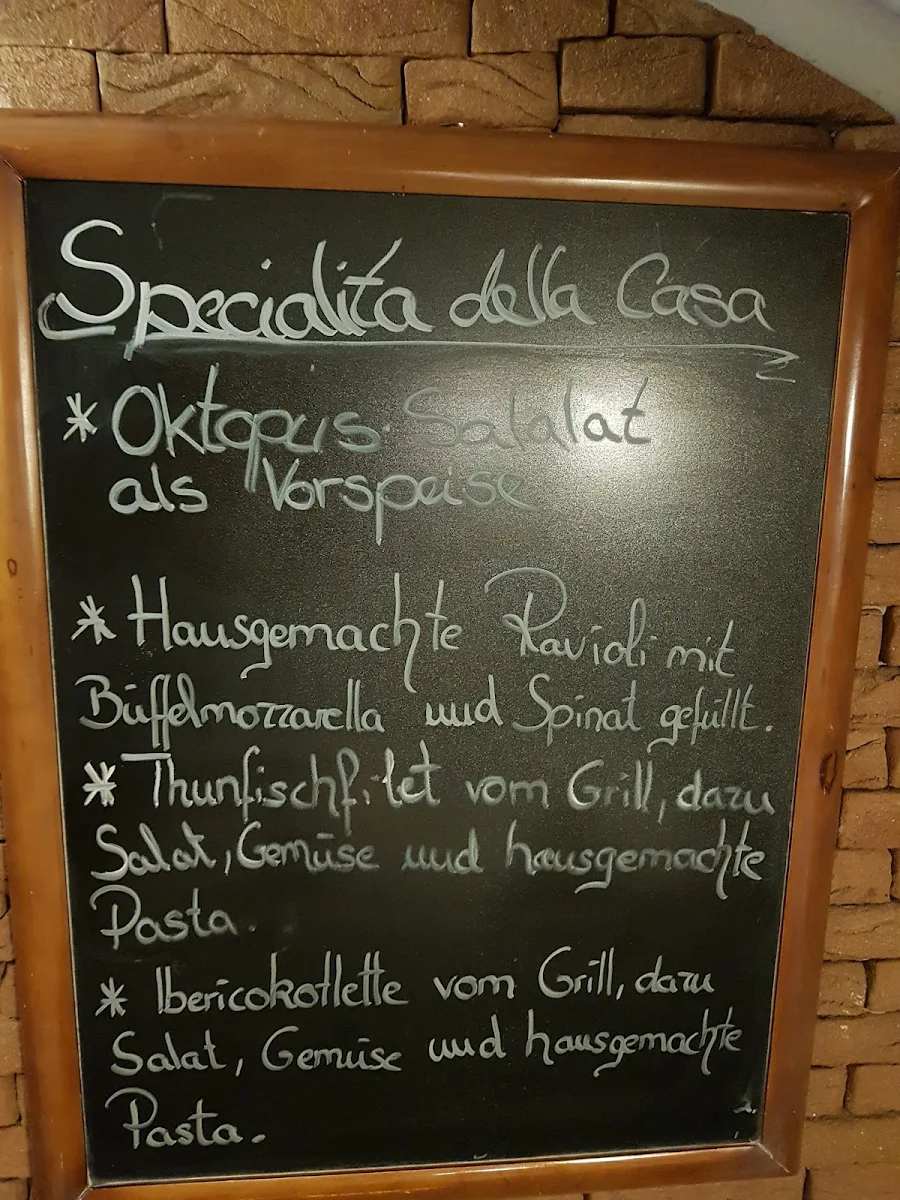 Specialità della Casa
* Oktopus-Salalat
als Vorspeise
* Hausgemachte Ravioli mit
Büffelmozzarella und Spinat gefüllt.
* Thunfischfilet vom Grill, dazu
Salat, Gemüse und hausgemachte
Pasta.
* Ibericokotlette vom Grill, dazu
Salat, Gemüse und hausgemachte
Pasta.